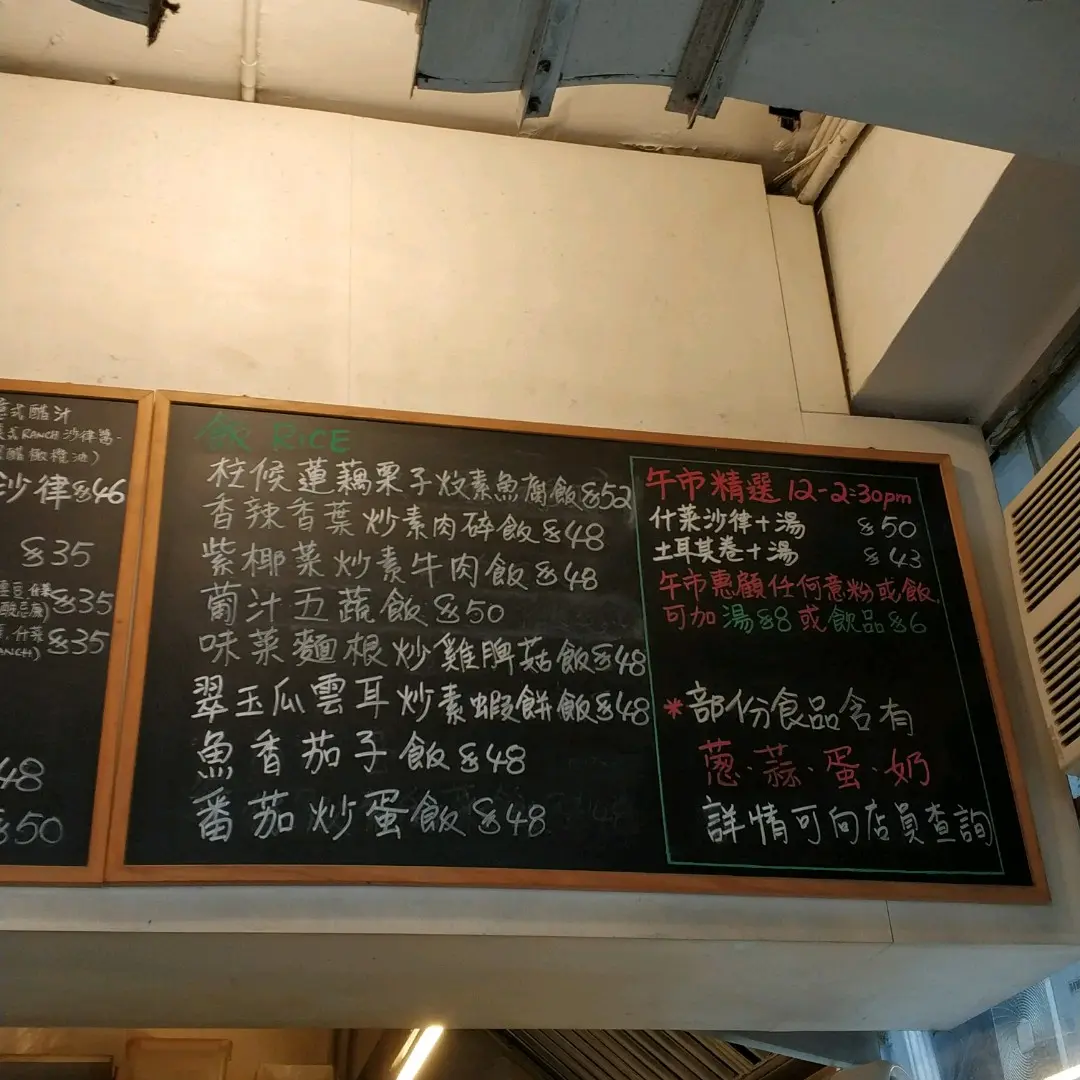 式醋汁
式RANCH沙律醬
醋橄欖油)
沙律 $46
$35
$35
什菜 $35
48
$50
飯 RICE
柱候蓮藕栗子炆素魚腐飯 $52
香辣香葉炒素肉碎飯 $48
紫椰菜炒素牛肉飯 $48
葡汁五蔬飯 $50
味菜麵根炒雞脾菇飯 $48
翠玉瓜雲耳炒素蝦餅飯 $48
魚香茄子飯 $48
番茄炒蛋飯 $48
午市精選 12-2:30pm
什菜沙律+湯 $50
土耳其卷+湯 $43
午市惠顧任何意粉或飯,
可加湯$8或飲品$6
*部份食品含有
蔥·蒜·蛋·奶
詳情可向店員查詢